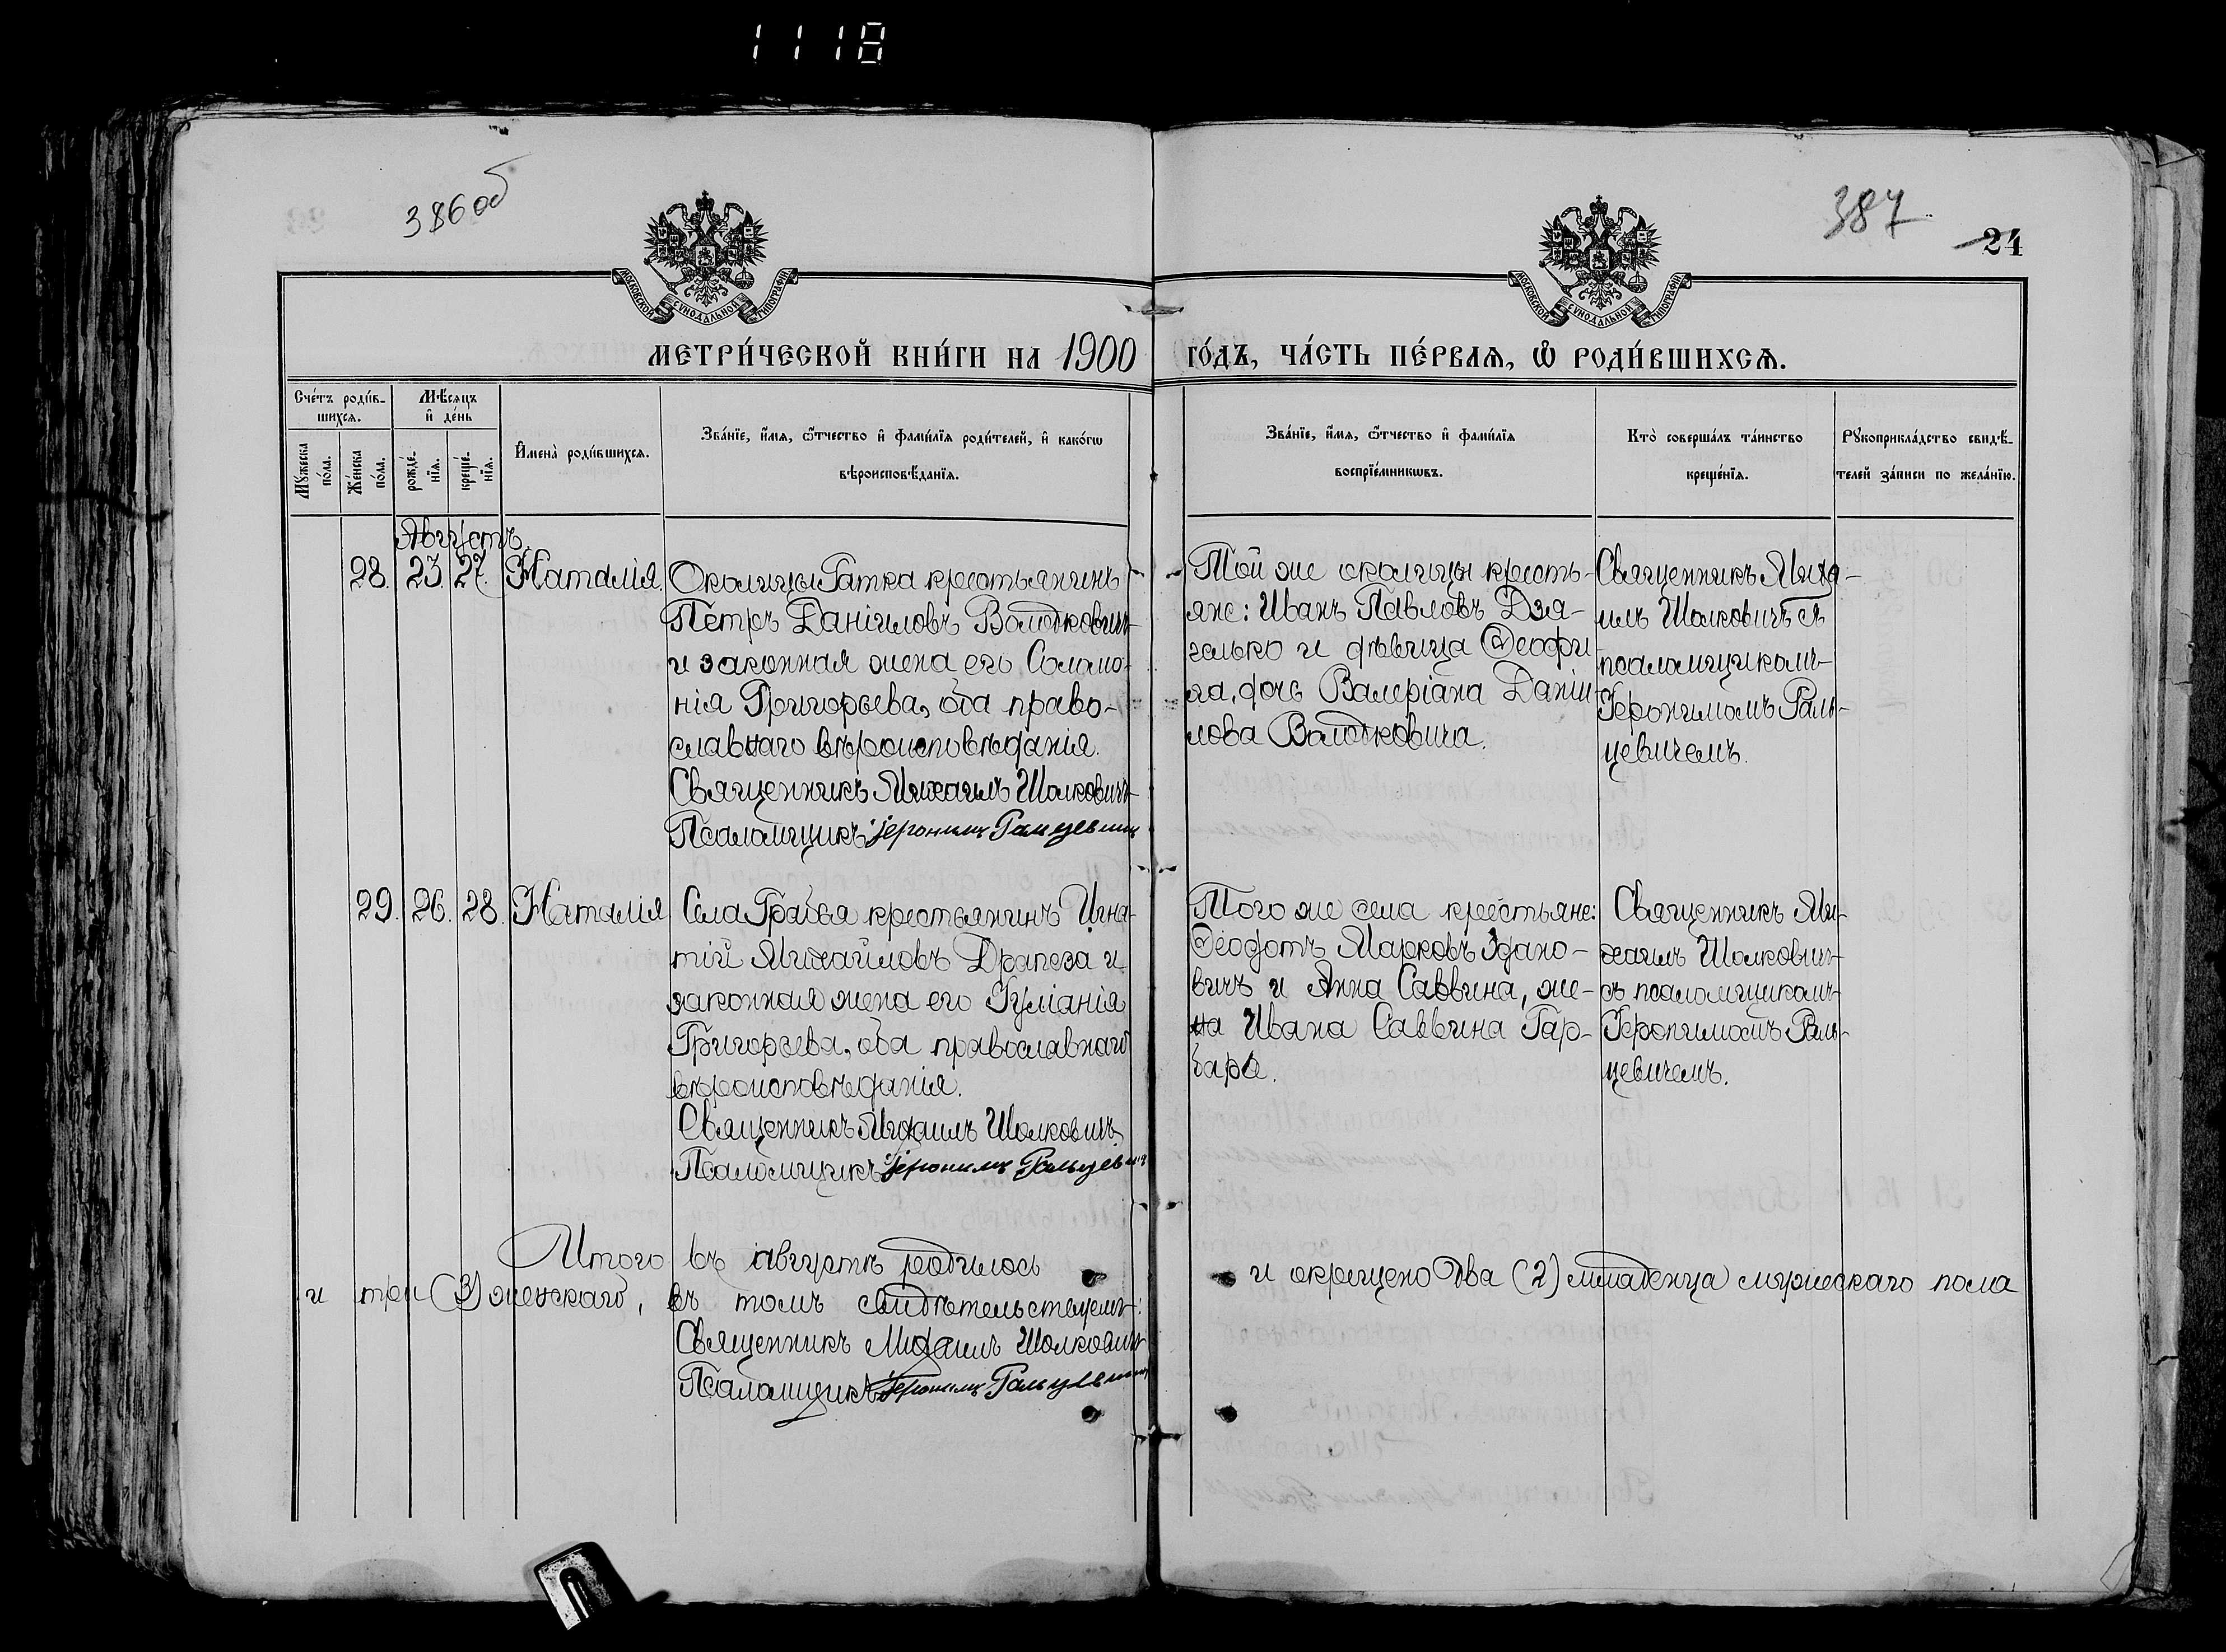 1118
386 об
387
24
МОСКОВСКОЙ СѴНОДАЛЬНОЙ ТИПОГРАФІИ
МОСКОВСКОЙ СѴНОДАЛЬНОЙ ТИПОГРАФІИ
МЕТРИ́ЧЕСКОЙ КНИ́ГИ НА 1900
ГО́ДЪ, ЧА́СТЬ ПЕ́РВАѦ, Ѡ҆ РОДИ́ВШИХСѦ.
Сче́тъ роди́в-
шихсѧ.
Мꙋ́жеска
по́ла.
Же́нска
по́ла.
Мѣ́сѧцъ
и҆ де́нь
рожде́-
нїѧ.
креще́-
нїѧ.
И҆мена̀ роди́вшихсѧ.
Зва́нїе, и҆́мѧ, ѻ҆́тчество и҆ фами́лїѧ роди́телей, и҆ како́гѡ
вѣроисповѣ́данїѧ.
Зва́нїе, и҆́мѧ, ѻ҆́тчество и҆ фами́лїѧ
воспрїе́мникѡвъ.
Кто̀ соверша́лъ та́инство
креще́нїѧ.
Рꙋкоприкла́дство свидѣ́-
телей за́писи по жела́нїю.
Августъ
28. 23. 27. Наталія.
Околицы Гатка крестьянинъ
Петръ Даніиловъ Володковичъ
и законная жена его Соломо-
нія Григорьева, оба право-
славнаго вѣроисповѣданія.
Священникъ Михаилъ Шолковичъ
Псаломщикъ Іеронимъ Гальцевичъ
Той же околицы кресть-
яне: Иванъ Павловъ Дзя-
голько и дѣвица Ѳеофи-
ла, дочь Валеріана Даніи-
лова Володковича.
Священникъ Миха-
илъ Шолковичъ съ
псаломщикомъ
Іеронимомъ Галь-
цевичемъ.
29. 26. 28. Наталія
Села Грабья крестьянинъ Игна-
тій Михайловъ Драпеза и
законная жена его Іуліанія
Григорьева, оба православнаго
вѣроисповѣданія.
Священникъ Михаилъ Шолковичъ
Псаломщикъ Іеронимъ Гальцевичъ
Того же села крестьяне:
Ѳеодотъ Марковъ Здано-
вичъ и Анна Саввина, же-
на Ивана Саввина Гар-
бара.
Священникъ Ми-
хаилъ Шолковичъ
съ псаломщикомъ
Іеронимомъ Галь-
цевичемъ.
Итого въ августѣ родилось
и окрещено два (2) младенца мужескаго пола
и три (3) женскаго, въ томъ свидѣтельствуемъ:
Священникъ Михаилъ Шолковичъ
Псаломщикъ Іеронимъ Гальцевичъ